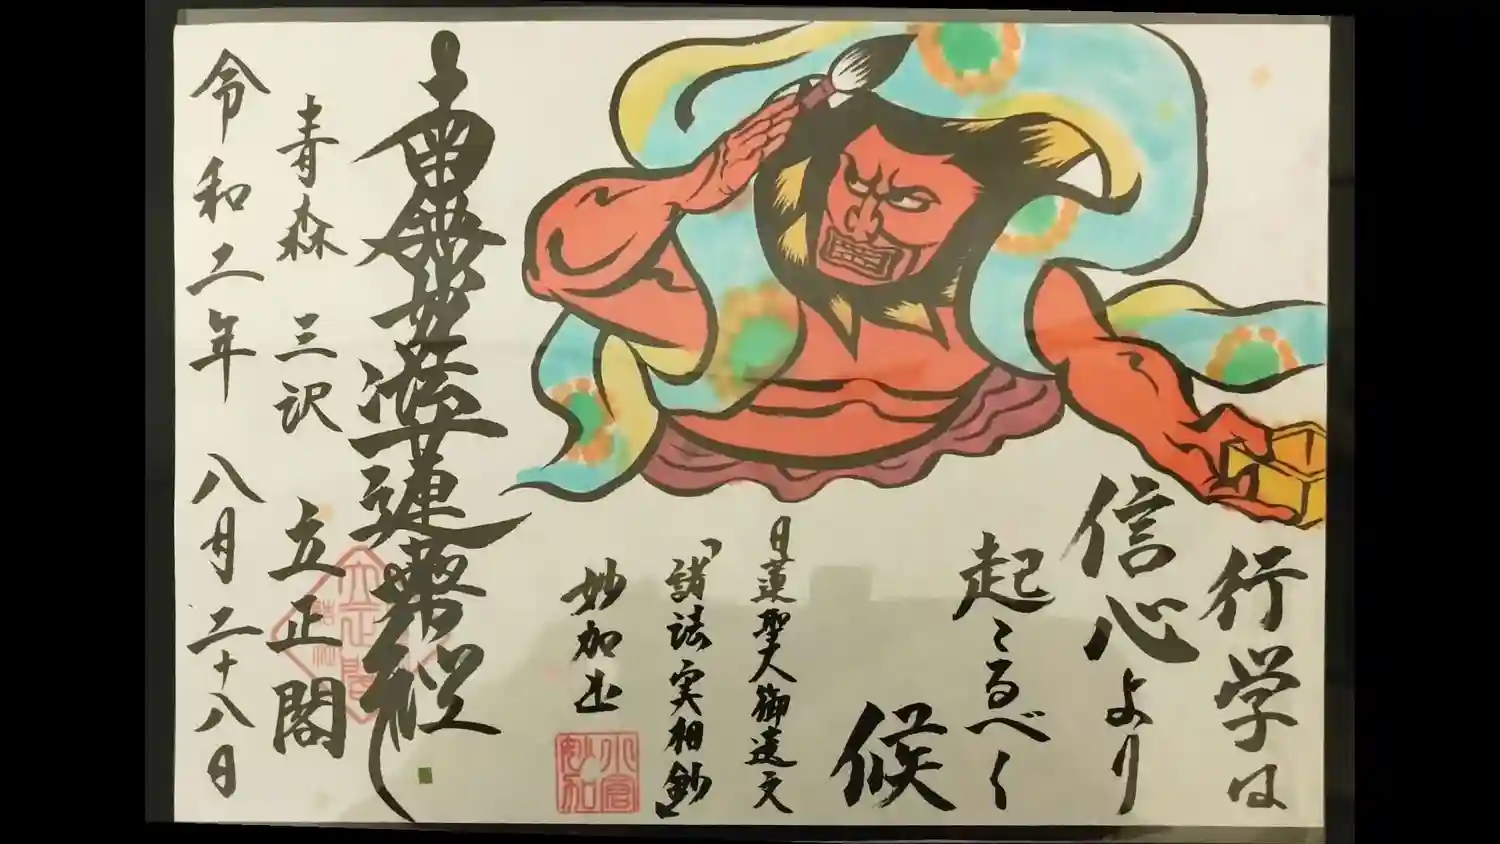 行学は
信心より
起こるべく
候
日蓮聖人御遺文
「諸法実相鈔」
妙加
小倉
妙加
南無妙法蓮華経
青森 三沢 立正閣
立正閣
令和二年 八月二十八日